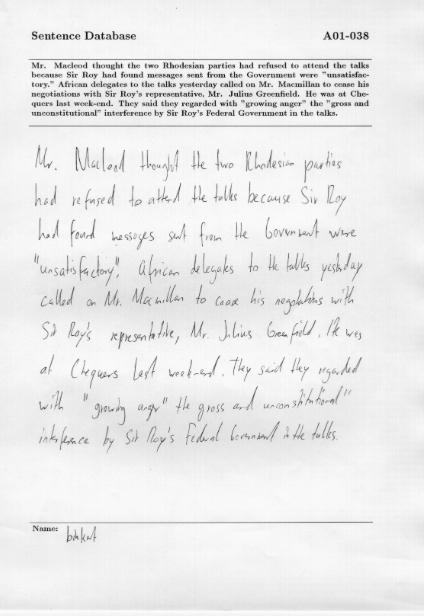 Sentence Database A01-038
Mr. Macleod thought the two Rhodesian parties had refused to attend the talks
because Sir Roy had found messages sent from the Government were "unsatisfac-
tory." African delegates to the talks yesterday called on Mr. Macmillan to cease his
negotiations with Sir Roy's representative, Mr. Julius Greenfield. He was at Che-
quers last week-end. They said they regarded with "growing anger" the "gross and
unconstitutional" interference by Sir Roy's Federal Government in the talks.
Mr. Macleod thought the two Rhodesian parties
had refused to attend the talks because Sir Roy
had found messages sent from the Government were
"unsatisfactory". African delegates to the talks yesterday
called on Mr. Macmillan to cease his negotiations with
Sir Roy's representative, Mr. Julius Greenfield. He was
at Chequers last week-end. They said they regarded
with "growing anger" the gross and unconstitutional"
interference by Sir Roy's Federal Government in the talks.
Name: